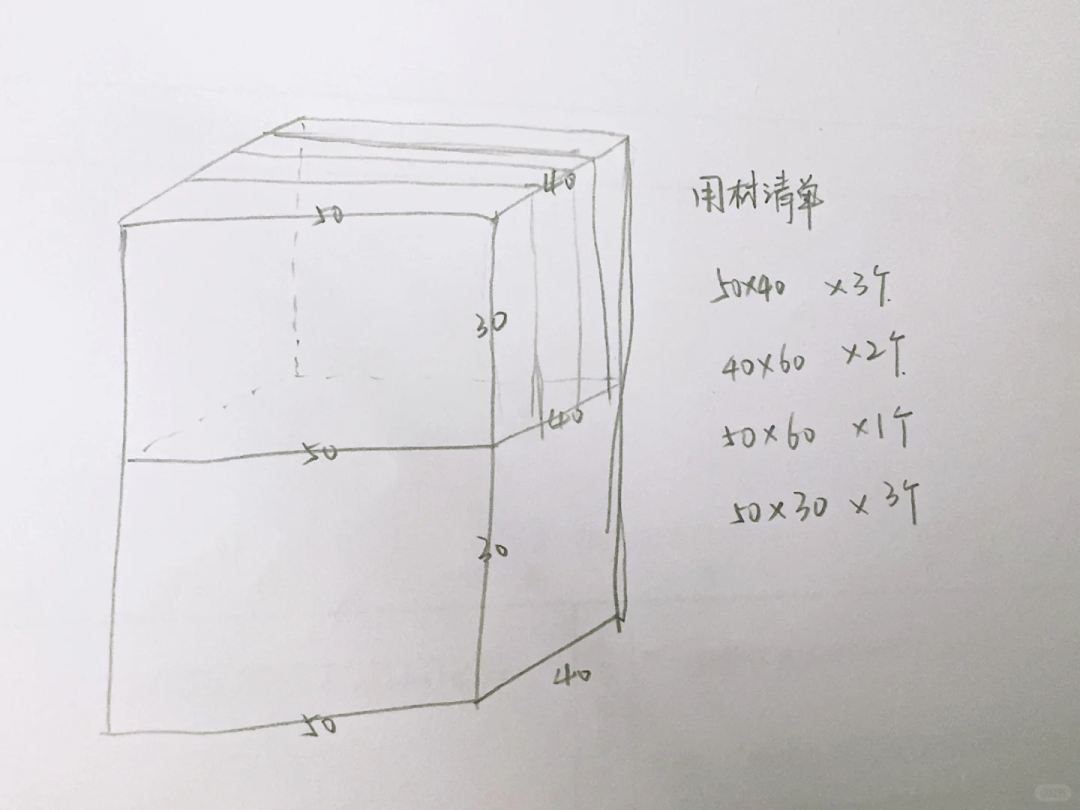 40
50
30
40
50
30
40
50
用材清单
50×40 ×3个
40×60 ×2个
50×60 ×1个
50×30 × 3个